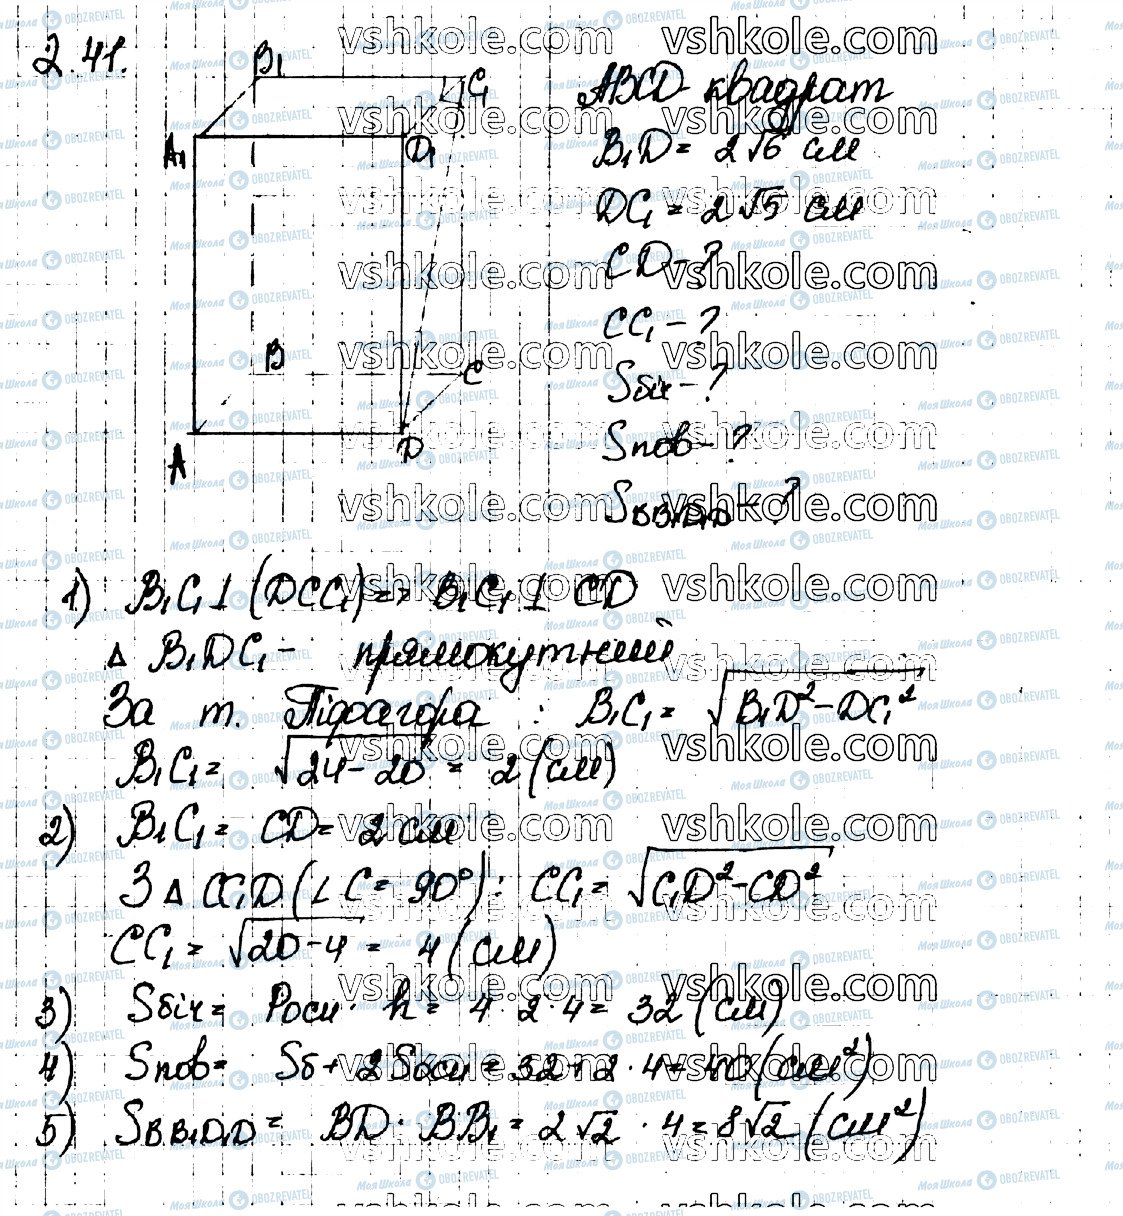 2.41.
B₁ C₁
A₁ D₁
B C
A D
ABCD - квадрат
B₁D = 2√6 см
DC₁ = 2√5 см
CD - ?
CC₁ - ?
Sбіч - ?
Sпов - ?
S_BB₁D₁D - ?
1) B₁C₁ ⊥ (DCC₁) => B₁C₁ ⊥ CD
Δ B₁DC₁ - прямокутний
За т. Піфагора : B₁C₁ = √(B₁D² - DC₁²)
B₁C₁ = √(24 - 20) = 2 (см)
2) B₁C₁ = CD = 2 см
З Δ CC₁D (∠C = 90°) : CC₁ = √(C₁D² - CD²)
CC₁ = √(20 - 4) = 4 (см)
3) Sбіч = Pосн · h = 4 · 2 · 4 = 32 (см)
4) Sпов = Sб + 2Sосн = 32 + 2 · 4 = 40 (см²)
5) S_BB₁D₁D = BD · BB₁ = 2√2 · 4 = 8√2 (см²)
vshkole.com
Моя Школа OBOZREVATEL